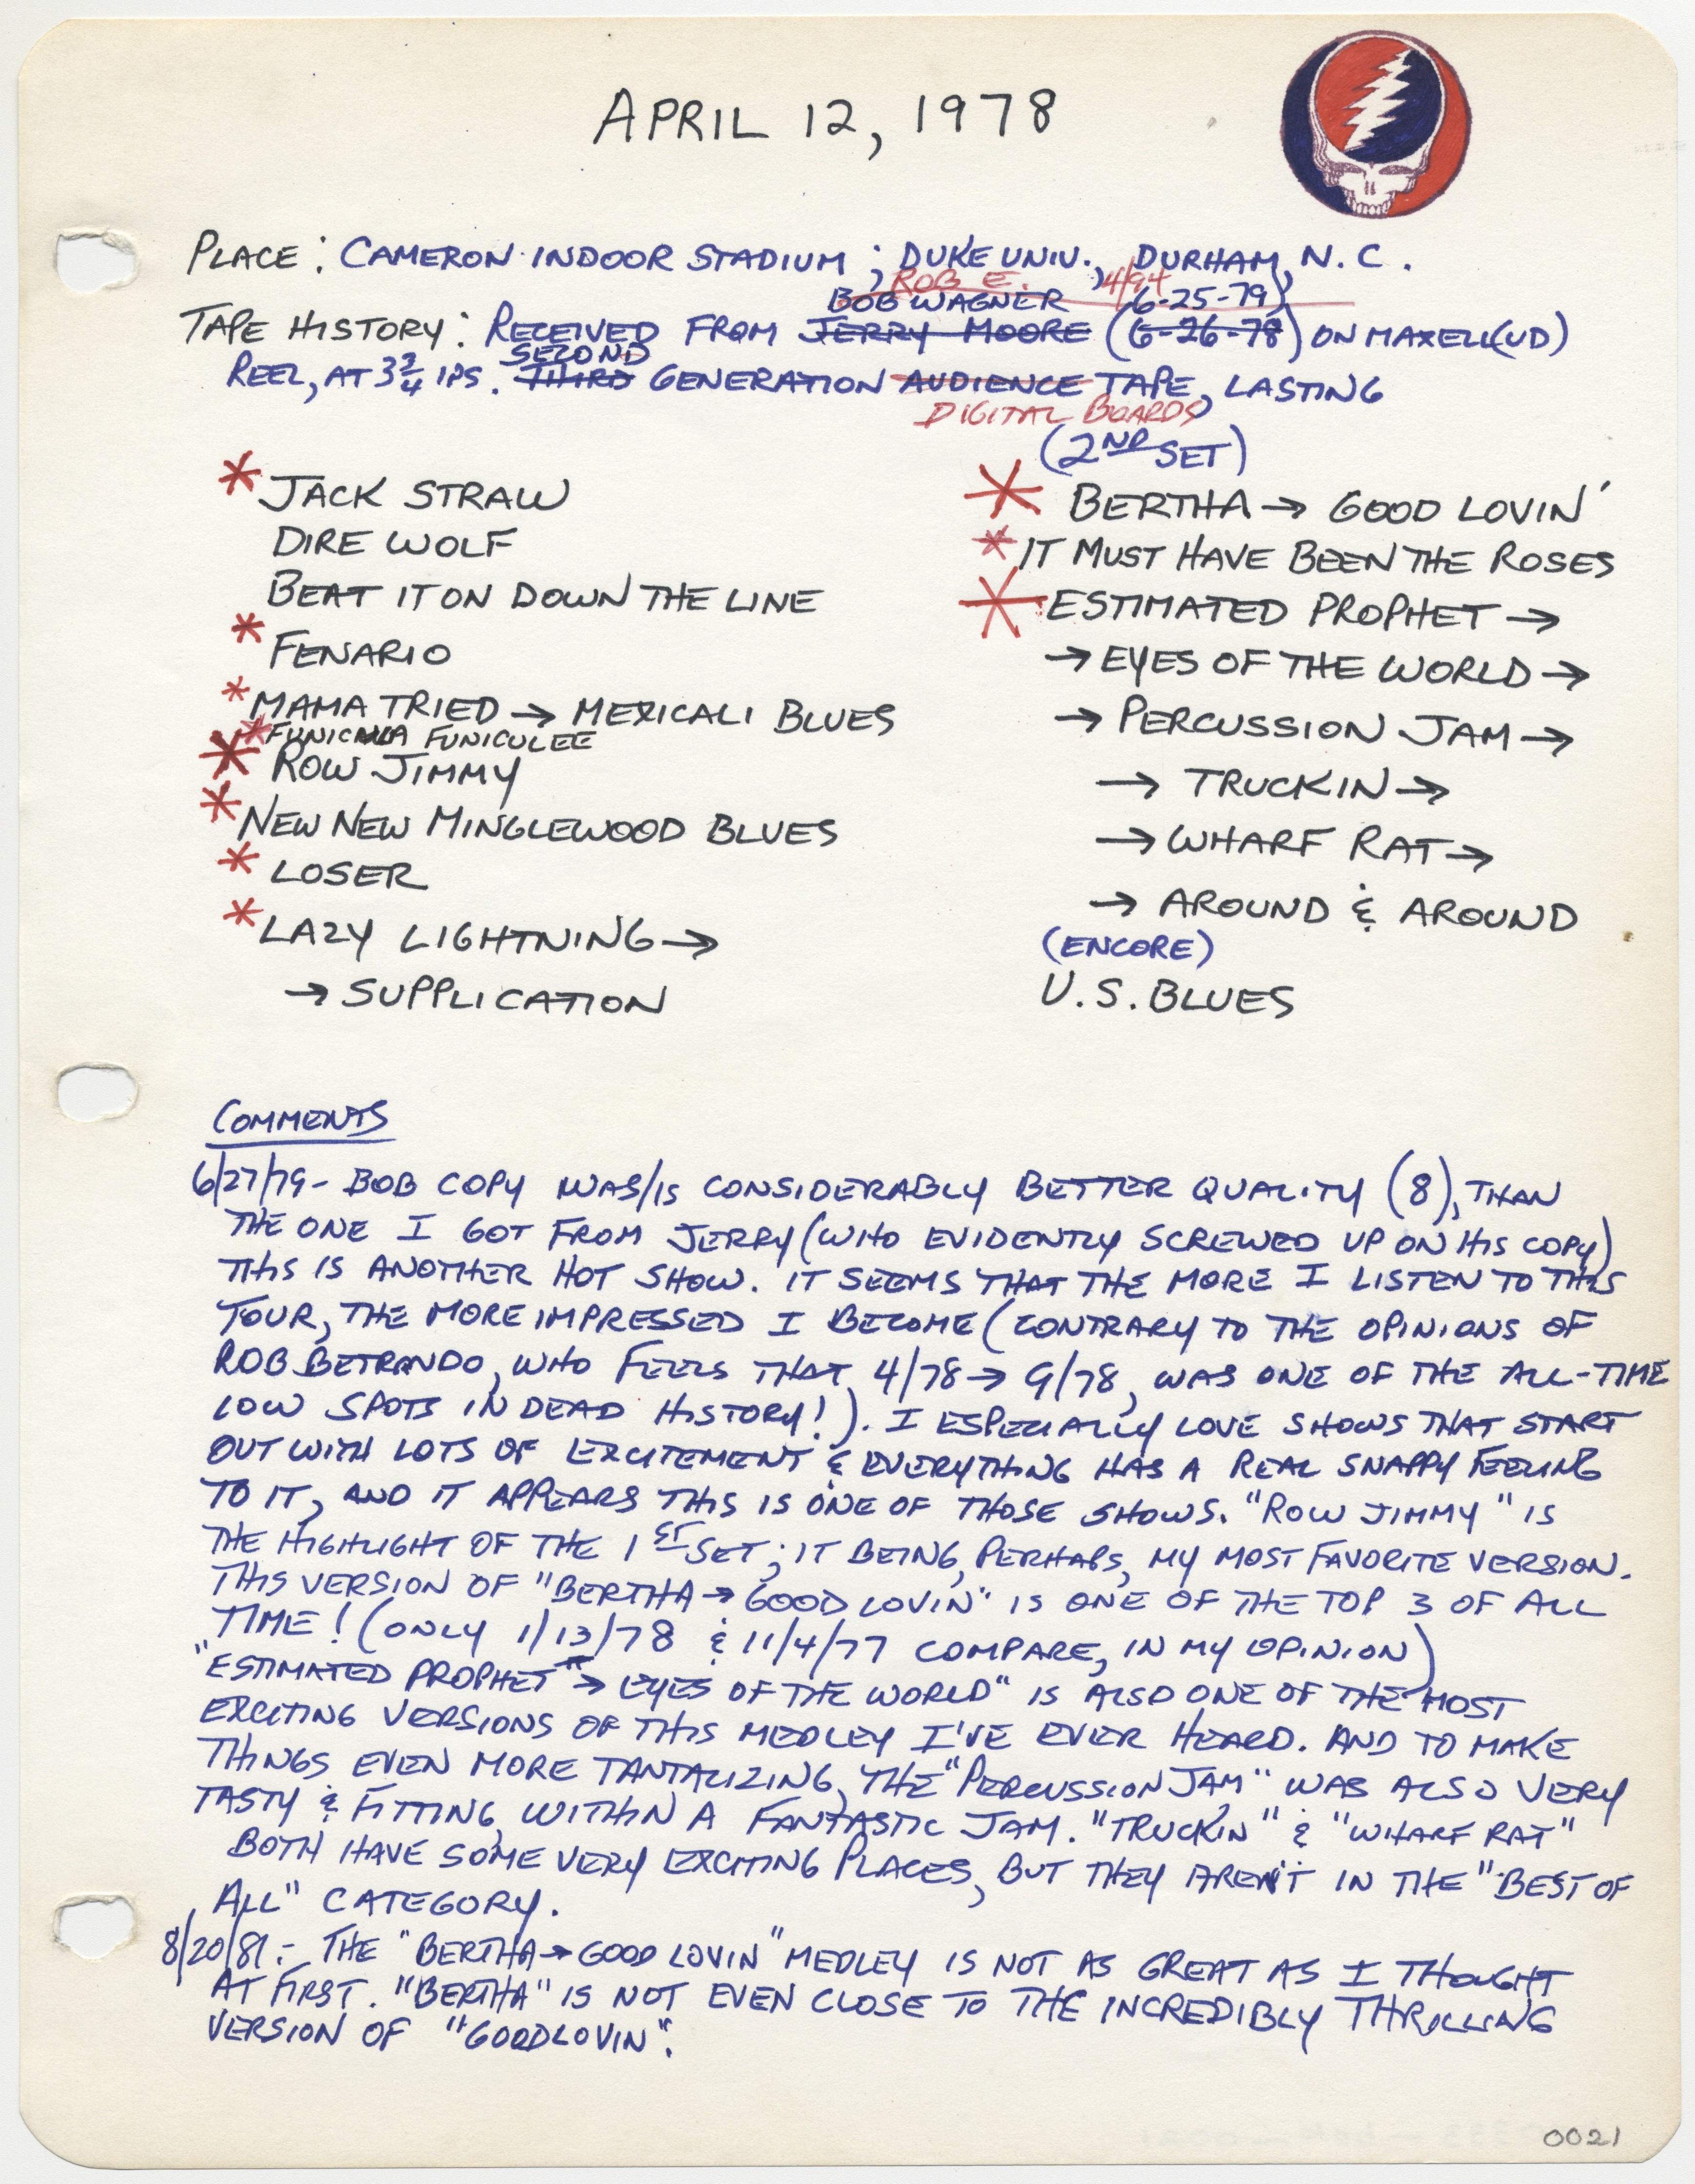 APRIL 12, 1978
PLACE: CAMERON INDOOR STADIUM; DUKE UNIV., DURHAM, N.C.
ROB E. 4/94
BOB WAGNER (6-25-79)
TAPE HISTORY: RECEIVED FROM JERRY MOORE (6-26-78) ON MAXELL (UD)
SECOND
REEL, AT 3 3/4 IPS. THIRD GENERATION AUDIENCE TAPE, LASTING
DIGITAL BOARDS
* JACK STRAW
DIRE WOLF
BEAT IT ON DOWN THE LINE
* FENARIO
* MAMA TRIED → MEXICALI BLUES
* FUNICULA FUNICULEE
* ROW JIMMY
* NEW NEW MINGLEWOOD BLUES
* LOSER
* LAZY LIGHTNING →
→ SUPPLICATION
(2ND SET)
* BERTHA → GOOD LOVIN'
* IT MUST HAVE BEEN THE ROSES
* ESTIMATED PROPHET →
→ EYES OF THE WORLD →
→ PERCUSSION JAM →
→ TRUCKIN →
→ WHARF RAT →
→ AROUND & AROUND
(ENCORE)
U.S. BLUES
COMMENTS
6/27/79 - BOB COPY WAS/IS CONSIDERABLY BETTER QUALITY (8), THAN
THE ONE I GOT FROM JERRY (WHO EVIDENTLY SCREWED UP ON HIS COPY)
THIS IS ANOTHER HOT SHOW. IT SEEMS THAT THE MORE I LISTEN TO THIS
TOUR, THE MORE IMPRESSED I BECOME (CONTRARY TO THE OPINIONS OF
ROB BETRANDO, WHO FEELS THAT 4/78 → 9/78, WAS ONE OF THE ALL-TIME
LOW SPOTS IN DEAD HISTORY!). I ESPECIALLY LOVE SHOWS THAT START
OUT WITH LOTS OF EXCITEMENT & EVERYTHING HAS A REAL SNAPPY FEELING
TO IT, AND IT APPEARS THIS IS ONE OF THOSE SHOWS. "ROW JIMMY" IS
THE HIGHLIGHT OF THE 1ST SET; IT BEING, PERHAPS, MY MOST FAVORITE VERSION.
THIS VERSION OF "BERTHA → GOOD LOVIN" IS ONE OF THE TOP 3 OF ALL
TIME! (ONLY 1/13/78 & 11/4/77 COMPARE, IN MY OPINION)
"ESTIMATED PROPHET" → EYES OF THE WORLD" IS ALSO ONE OF THE MOST
EXCITING VERSIONS OF THIS MEDLEY I'VE EVER HEARD. AND TO MAKE
THINGS EVEN MORE TANTALIZING, THE "PERCUSSION JAM" WAS ALSO VERY
TASTY & FITTING, WITHIN A FANTASTIC JAM. "TRUCKIN" & "WHARF RAT"
BOTH HAVE SOME VERY EXCITING PLACES, BUT THEY AREN'T IN THE "BEST OF
ALL" CATEGORY.
8/20/81 - THE "BERTHA → GOOD LOVIN" MEDLEY IS NOT AS GREAT AS I THOUGHT
AT FIRST. "BERTHA" IS NOT EVEN CLOSE TO THE INCREDIBLY THRILLING
VERSION OF "GOOD LOVIN".
0021